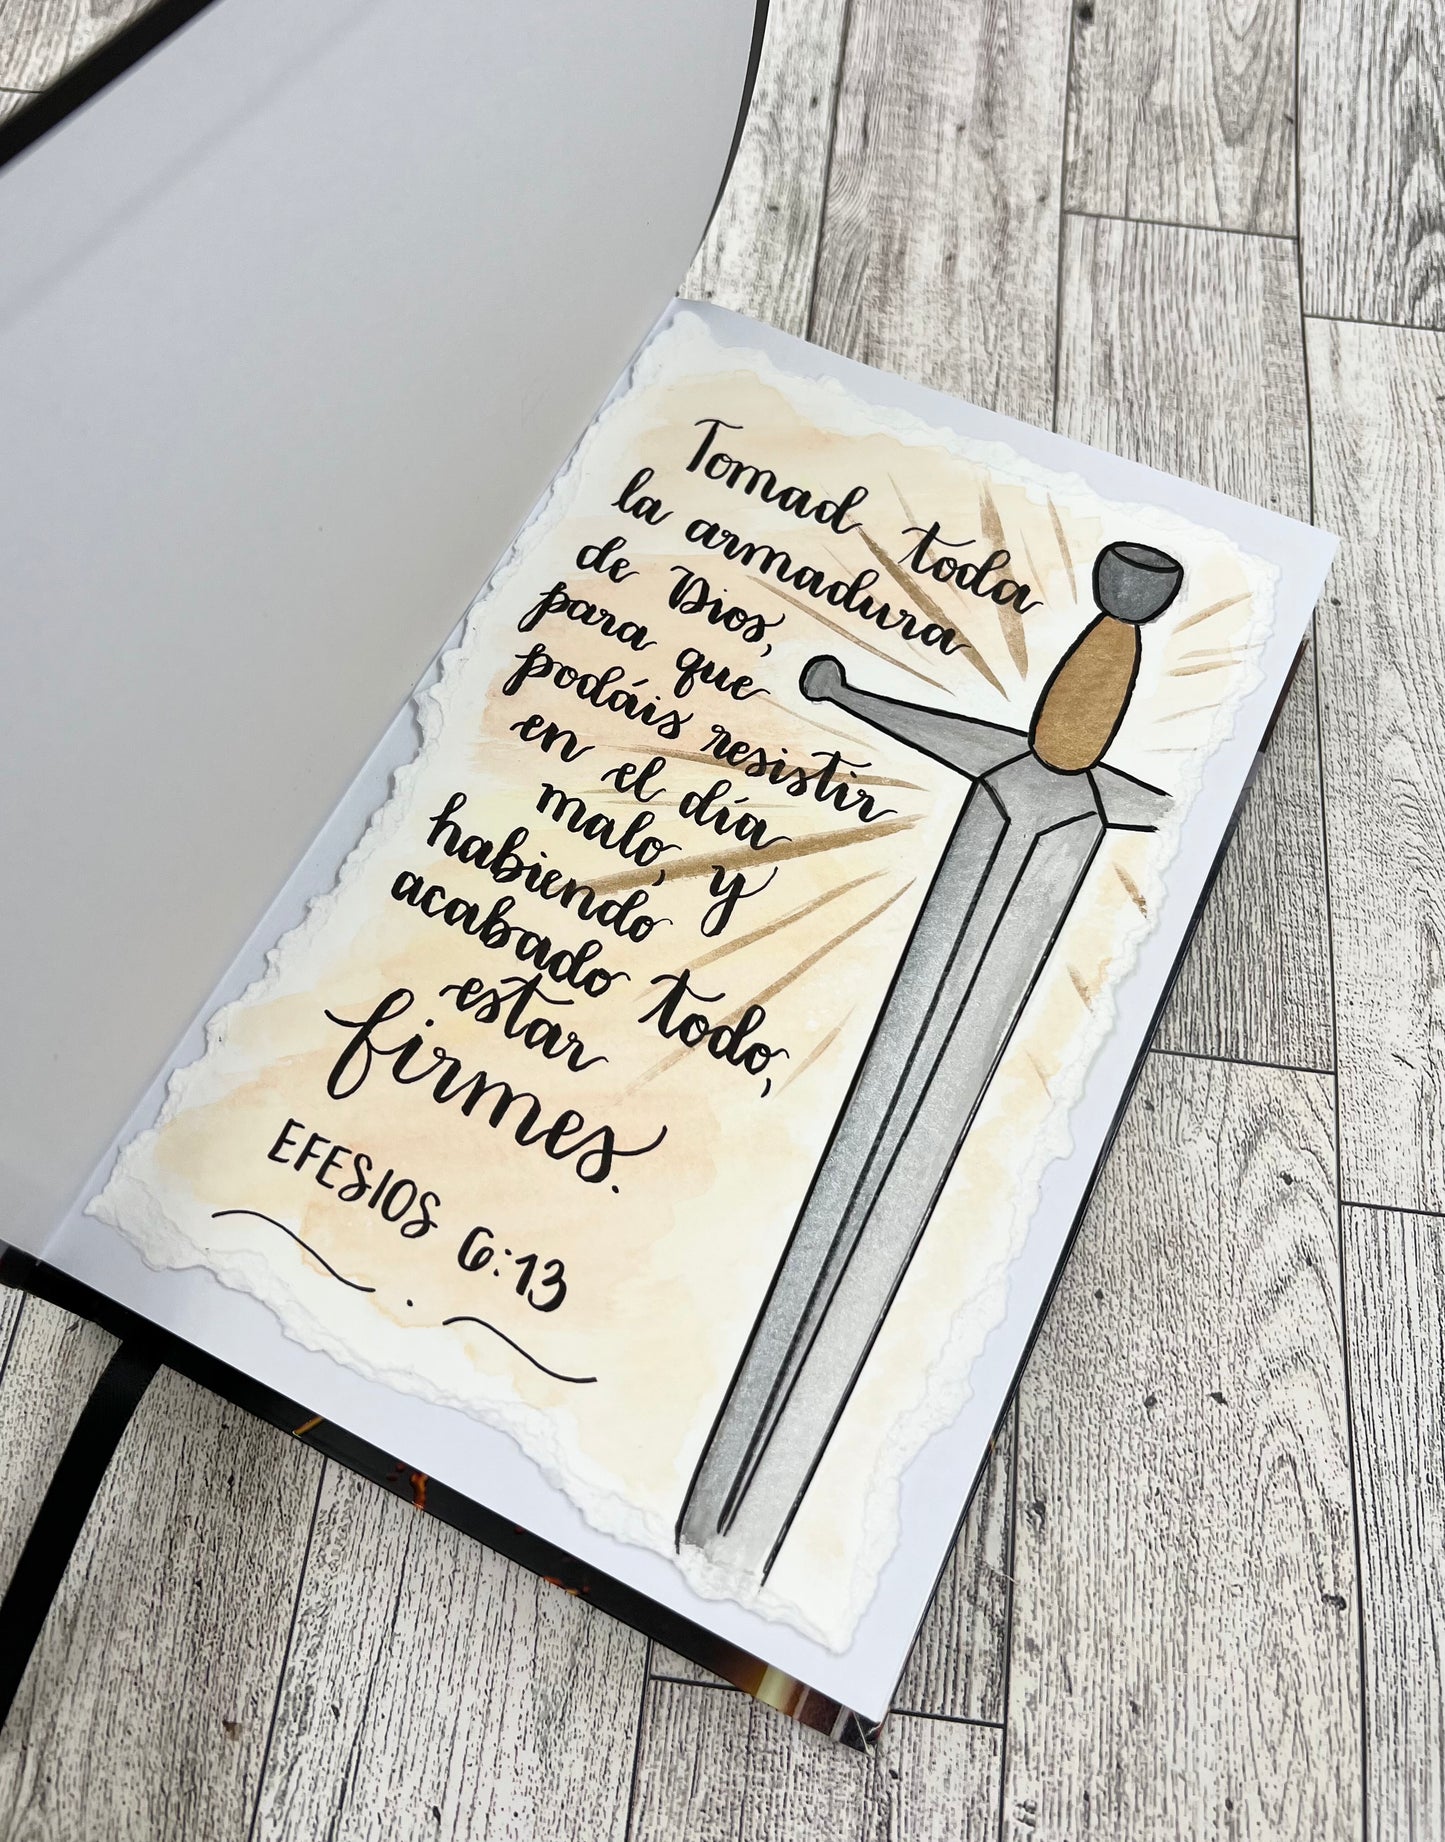 Tomad toda
la armadura
de Dios,
para que
podáis resistir
en el día
malo, y
habiendo
acabado todo,
estar
firmes.
EFESIOS 6:13